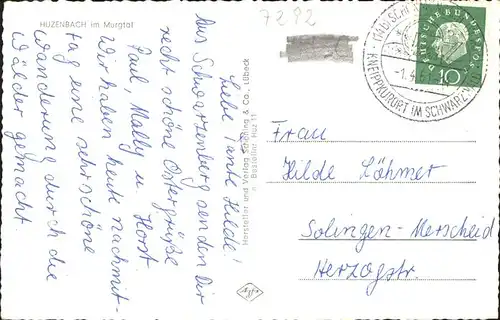 HUZENBACH im Murgtal
7292
Liebe Tante Hilde!
Aus Schwarzenberg senden Dir
recht schöne Ostergrüße
Paul, Mally u. Horst
Wir haben heute nachmit-
tag eine sehr schöne
Wanderung durch die
Wälder gemacht
Hersteller und Verlag Schöning & Co., Lübeck
n. Bestellnr. Huz 11
DEUTSCHE BUNDESPOST
10
KNEIPPKURORT IM SCHWARZW
Frau
Hilde Löhmer
Solingen-Merscheid
Herzogstr.